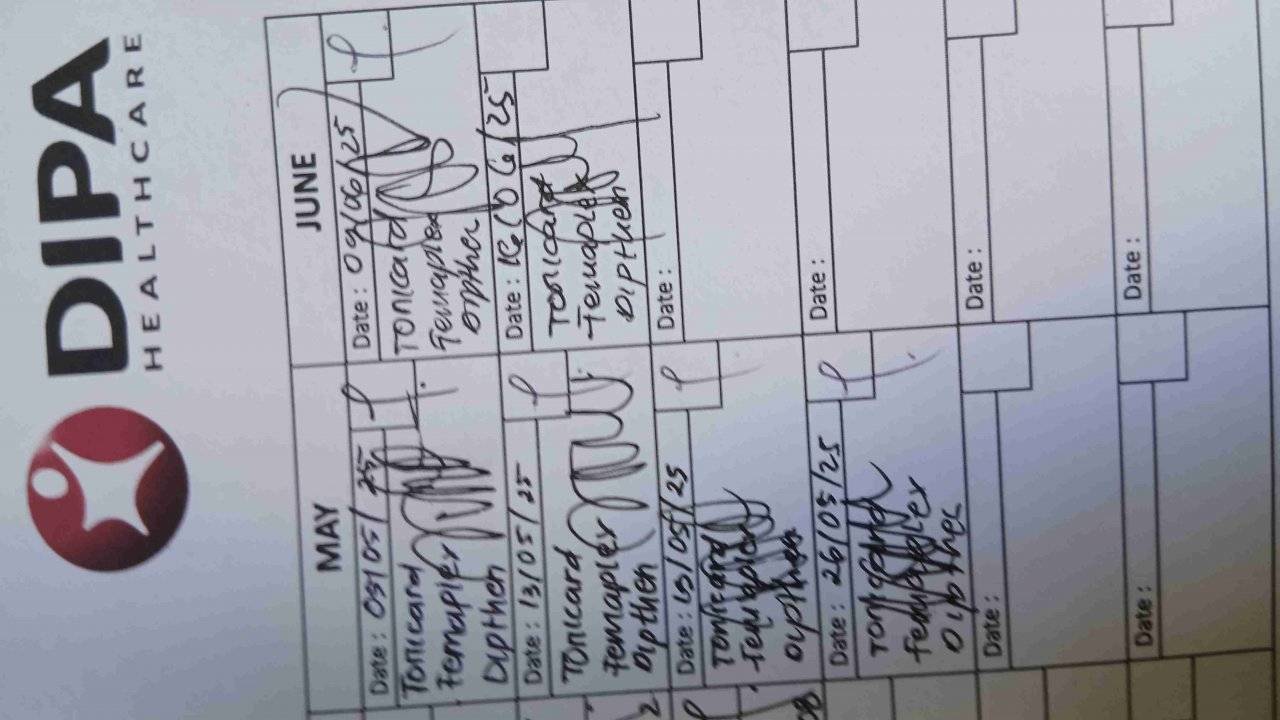 DIPA
HEALTHCARE
MAY
Date: 05/05/25
Tonicard
Femaplex
Dipthen
Date: 13/05/25
Tonicard
Femaplex
Dipthen
Date: 19/05/25
Tonicard
Femaplex
Dipthen
Date: 26/05/25
Tonicard
Femaplex
Dipthen
Date:
Date:
JUNE
Date: 09/06/25
Tonicard
Femaplex
Dipthen
Date: 16/06/25
Tonicard
Femaplex
Dipthen
Date:
Date:
Date:
Date: